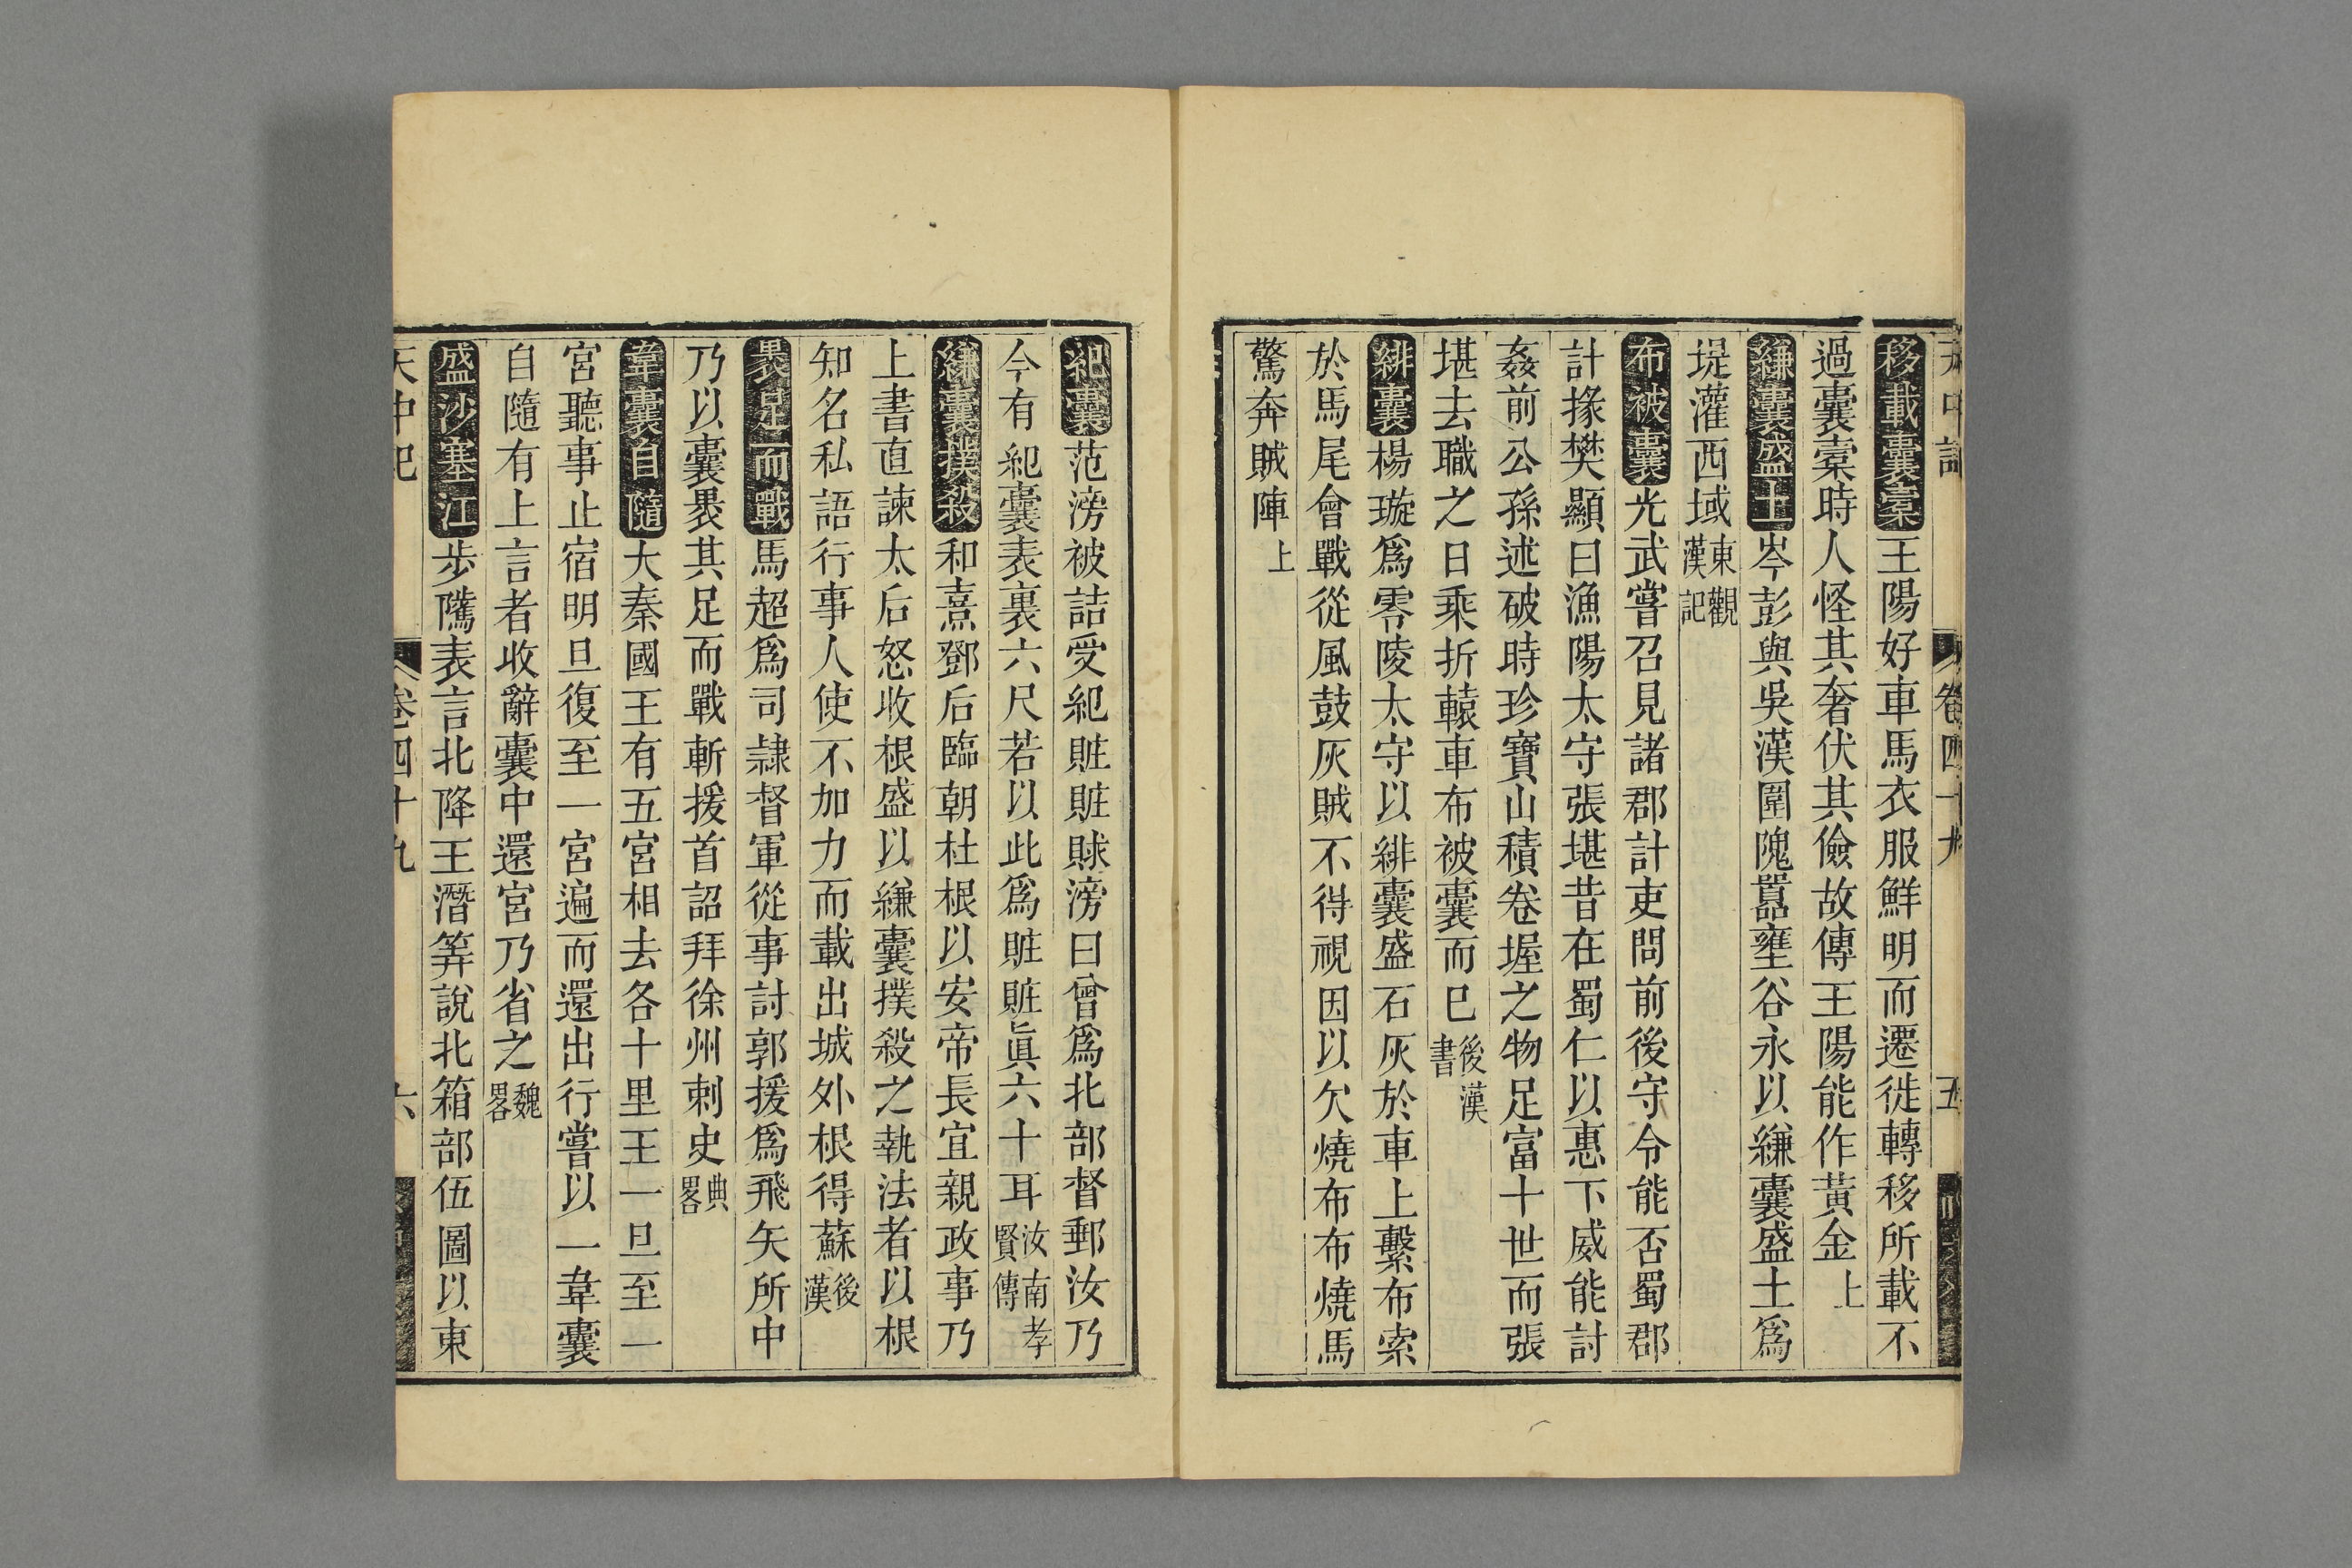 天中記 卷四十九 五
移載囊橐王陽好車馬衣服鮮明而遷徙轉移所載不
過囊橐時人怪其奢伏其儉故傳王陽能作黃金上
縑囊盛土岑彭與吳漢圍隗囂壅谷永以縑囊盛土爲
堤灌西域東觀漢記
布被囊光武嘗召見諸郡計吏問前後守令能否蜀郡
計掾樊顯曰漁陽太守張堪昔在蜀仁以惠下威能討
姦前公孫述破時珍寶山積卷握之物足富十世而張
堪去職之日乘折轅車布被囊而巳後漢書
緋囊楊璇爲零陵太守以緋囊盛石灰於車上繫布索
於馬尾會戰從風鼓灰賊不得視因以火燒布布燒馬
驚奔賊陣上
紀囊范滂被詰受紀賍賍賕滂曰曾爲北部督郵汝乃
今有紀囊表裏六尺若以此爲賍賍眞六十耳汝南孝賢傳
縑囊撲殺和熹鄧后臨朝杜根以安帝長宜親政事乃
上書直諫太后怒收根盛以縑囊撲殺之執法者以根
知名私語行事人使不加力而載出城外根得蘇後漢
褁足而戰馬超爲司隷督軍從事討郭援爲飛矢所中
乃以囊褁其足而戰斬援首詔拜徐州刺史典畧
韋囊自隨大秦國王有五宮相去各十里王一旦至一
宮聽事止宿明旦復至一宮遍而還出行嘗以一韋囊
自隨有上言者收辭囊中還宮乃省之魏畧
盛沙塞江步隲表言北降王潛等說北箱部伍圖以東
天中記 卷四十九 六